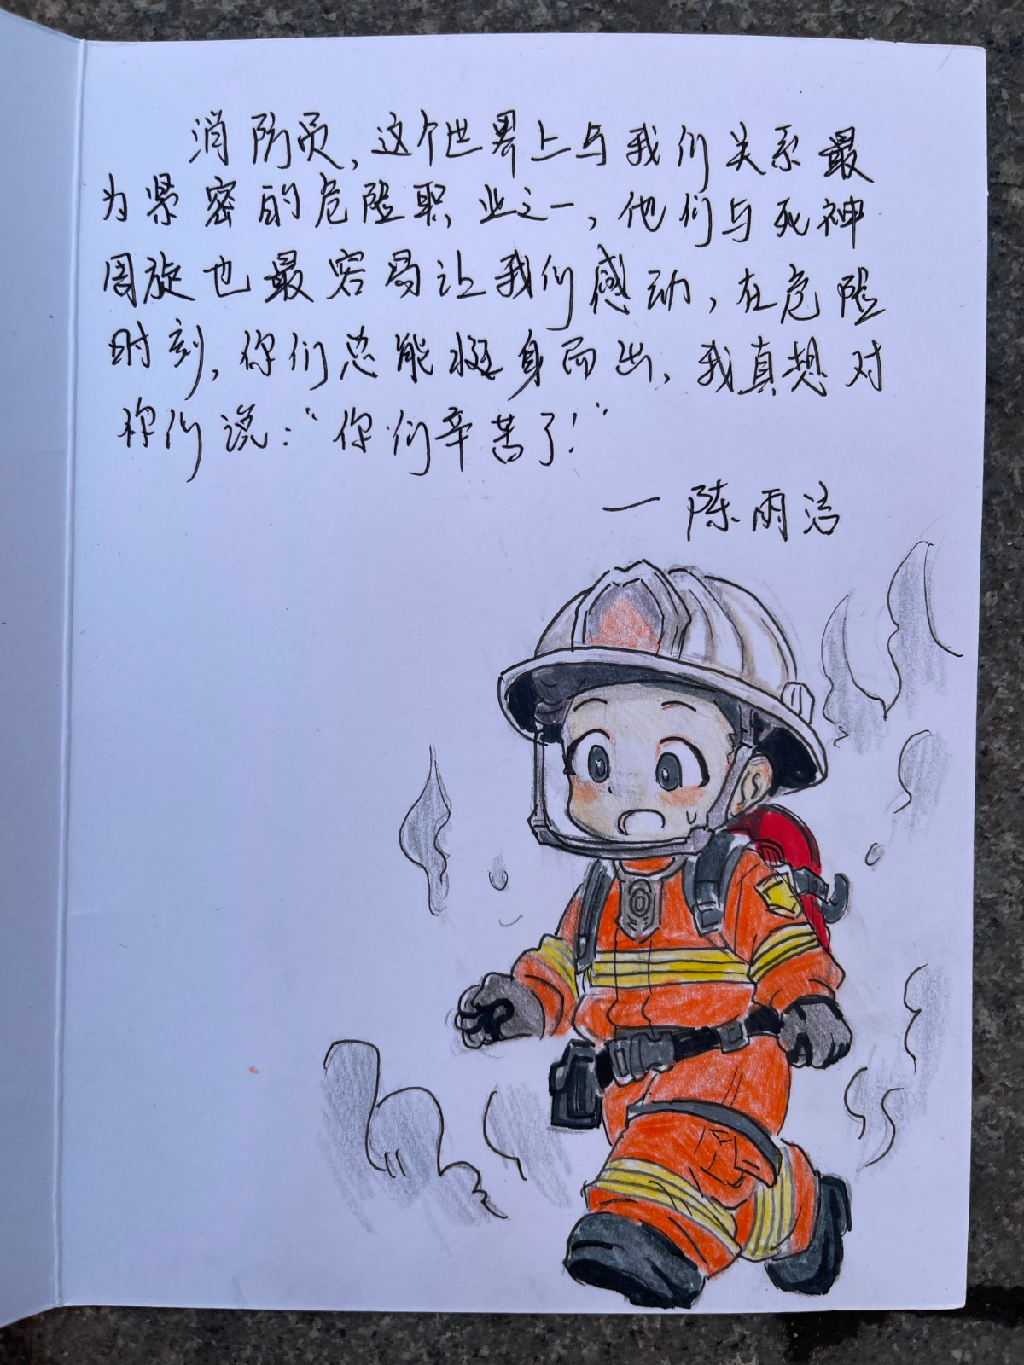 消防员,这个世界上与我们关系最
为紧密的危险职业之一,他们与死神
周旋也最容易让我们感动,在危险
时刻,你们总能挺身而出,我真想对
你们说:“你们辛苦了!”
—陈雨洁